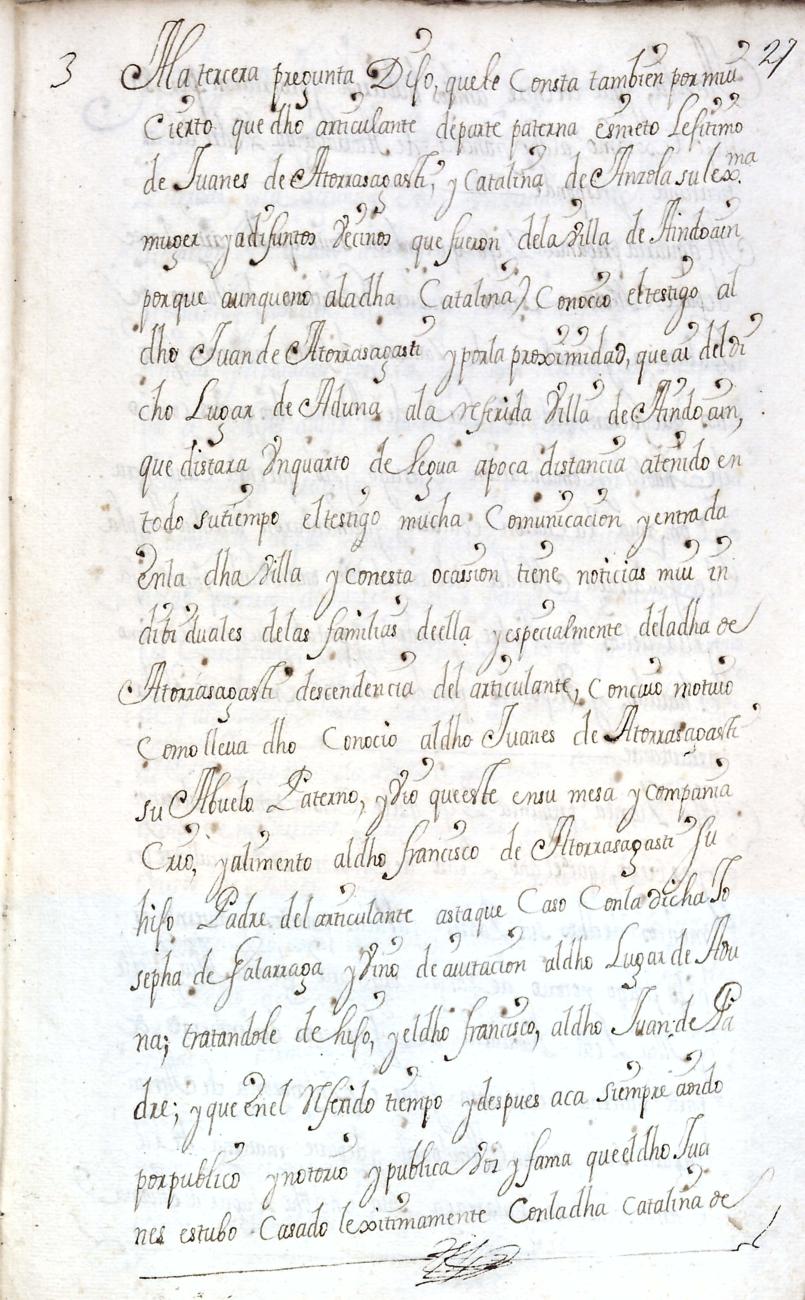 3 A la tercera pregunta Dijo, que le Consta tambien por mui 27
Cierto que dho articulante departe paterna es nieto Lesitimo
de Juanes de Atorrasagasti, y Catalina de Anzola su lex.ma
muger ya difuntos Vecinos que fueron dela Villa de Aindoain
porque aunqueno aladha Catalina) Conocio el testigo al
dho Juan de Atorrasagasti y porla proximidad, que ai del di
cho Lugar de Aduna ala referida Villa de Aindoain,
que distara Vnquarto de Legua apoca distancia atenido en
todo sutiempo el testigo mucha Comunicacion y entrada
enla dha Villa y conesta ocassion tiene noticias mui in
dibiduales delas familias deella y especialmente deladha de
Atorrasagasti descendencia del articulante, Concuio motiuo
Como lleua dho Conocio aldho Juanes de Atorrasagasti
su Abuelo Paterno, y Vio queeste ensu mesa y compania
Crio, y alimento aldho francisco de Atorrasagasti su
hijo Padre del articulante astaque Caso Conla dicha Jo
sepha de Galarraga y Vino de auitacion aldho Lugar de Adu
na; tratandole de hijo, y eldho francisco, aldho Juan de Pa
dre; y que enel Referido tiempo y despues aca siempre aoido
porpublico y notorio y publica Voz y fama que eldho Jua
nes estubo Casado lexitimamente Conladha Catalina de